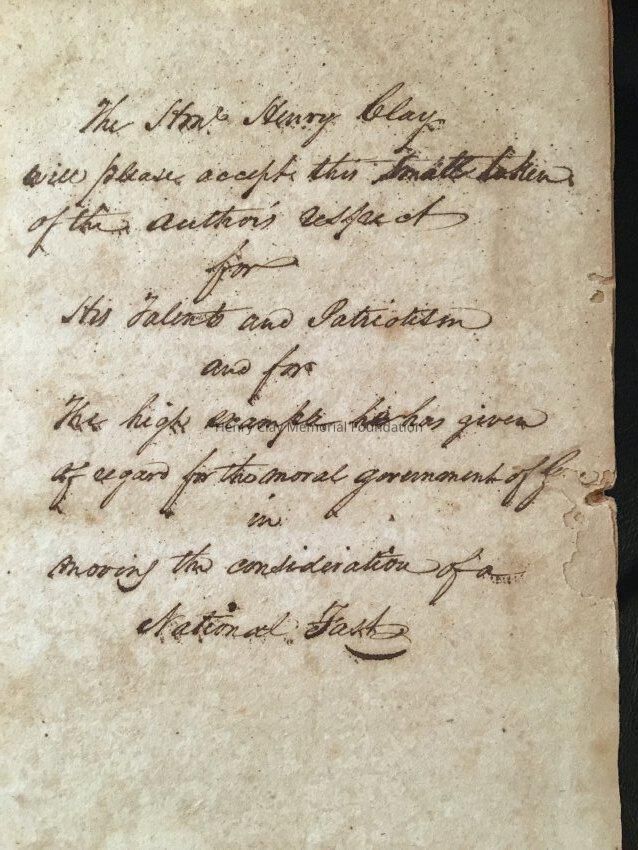 The Honl. Henry Clay
will please accept this small token
of the author's respect
for
His Talents and Patriotism
and for
The high example he has given
Henry Clay Memorial Foundation
of regard for the moral government of
in
moving the consideration of a
National Fast